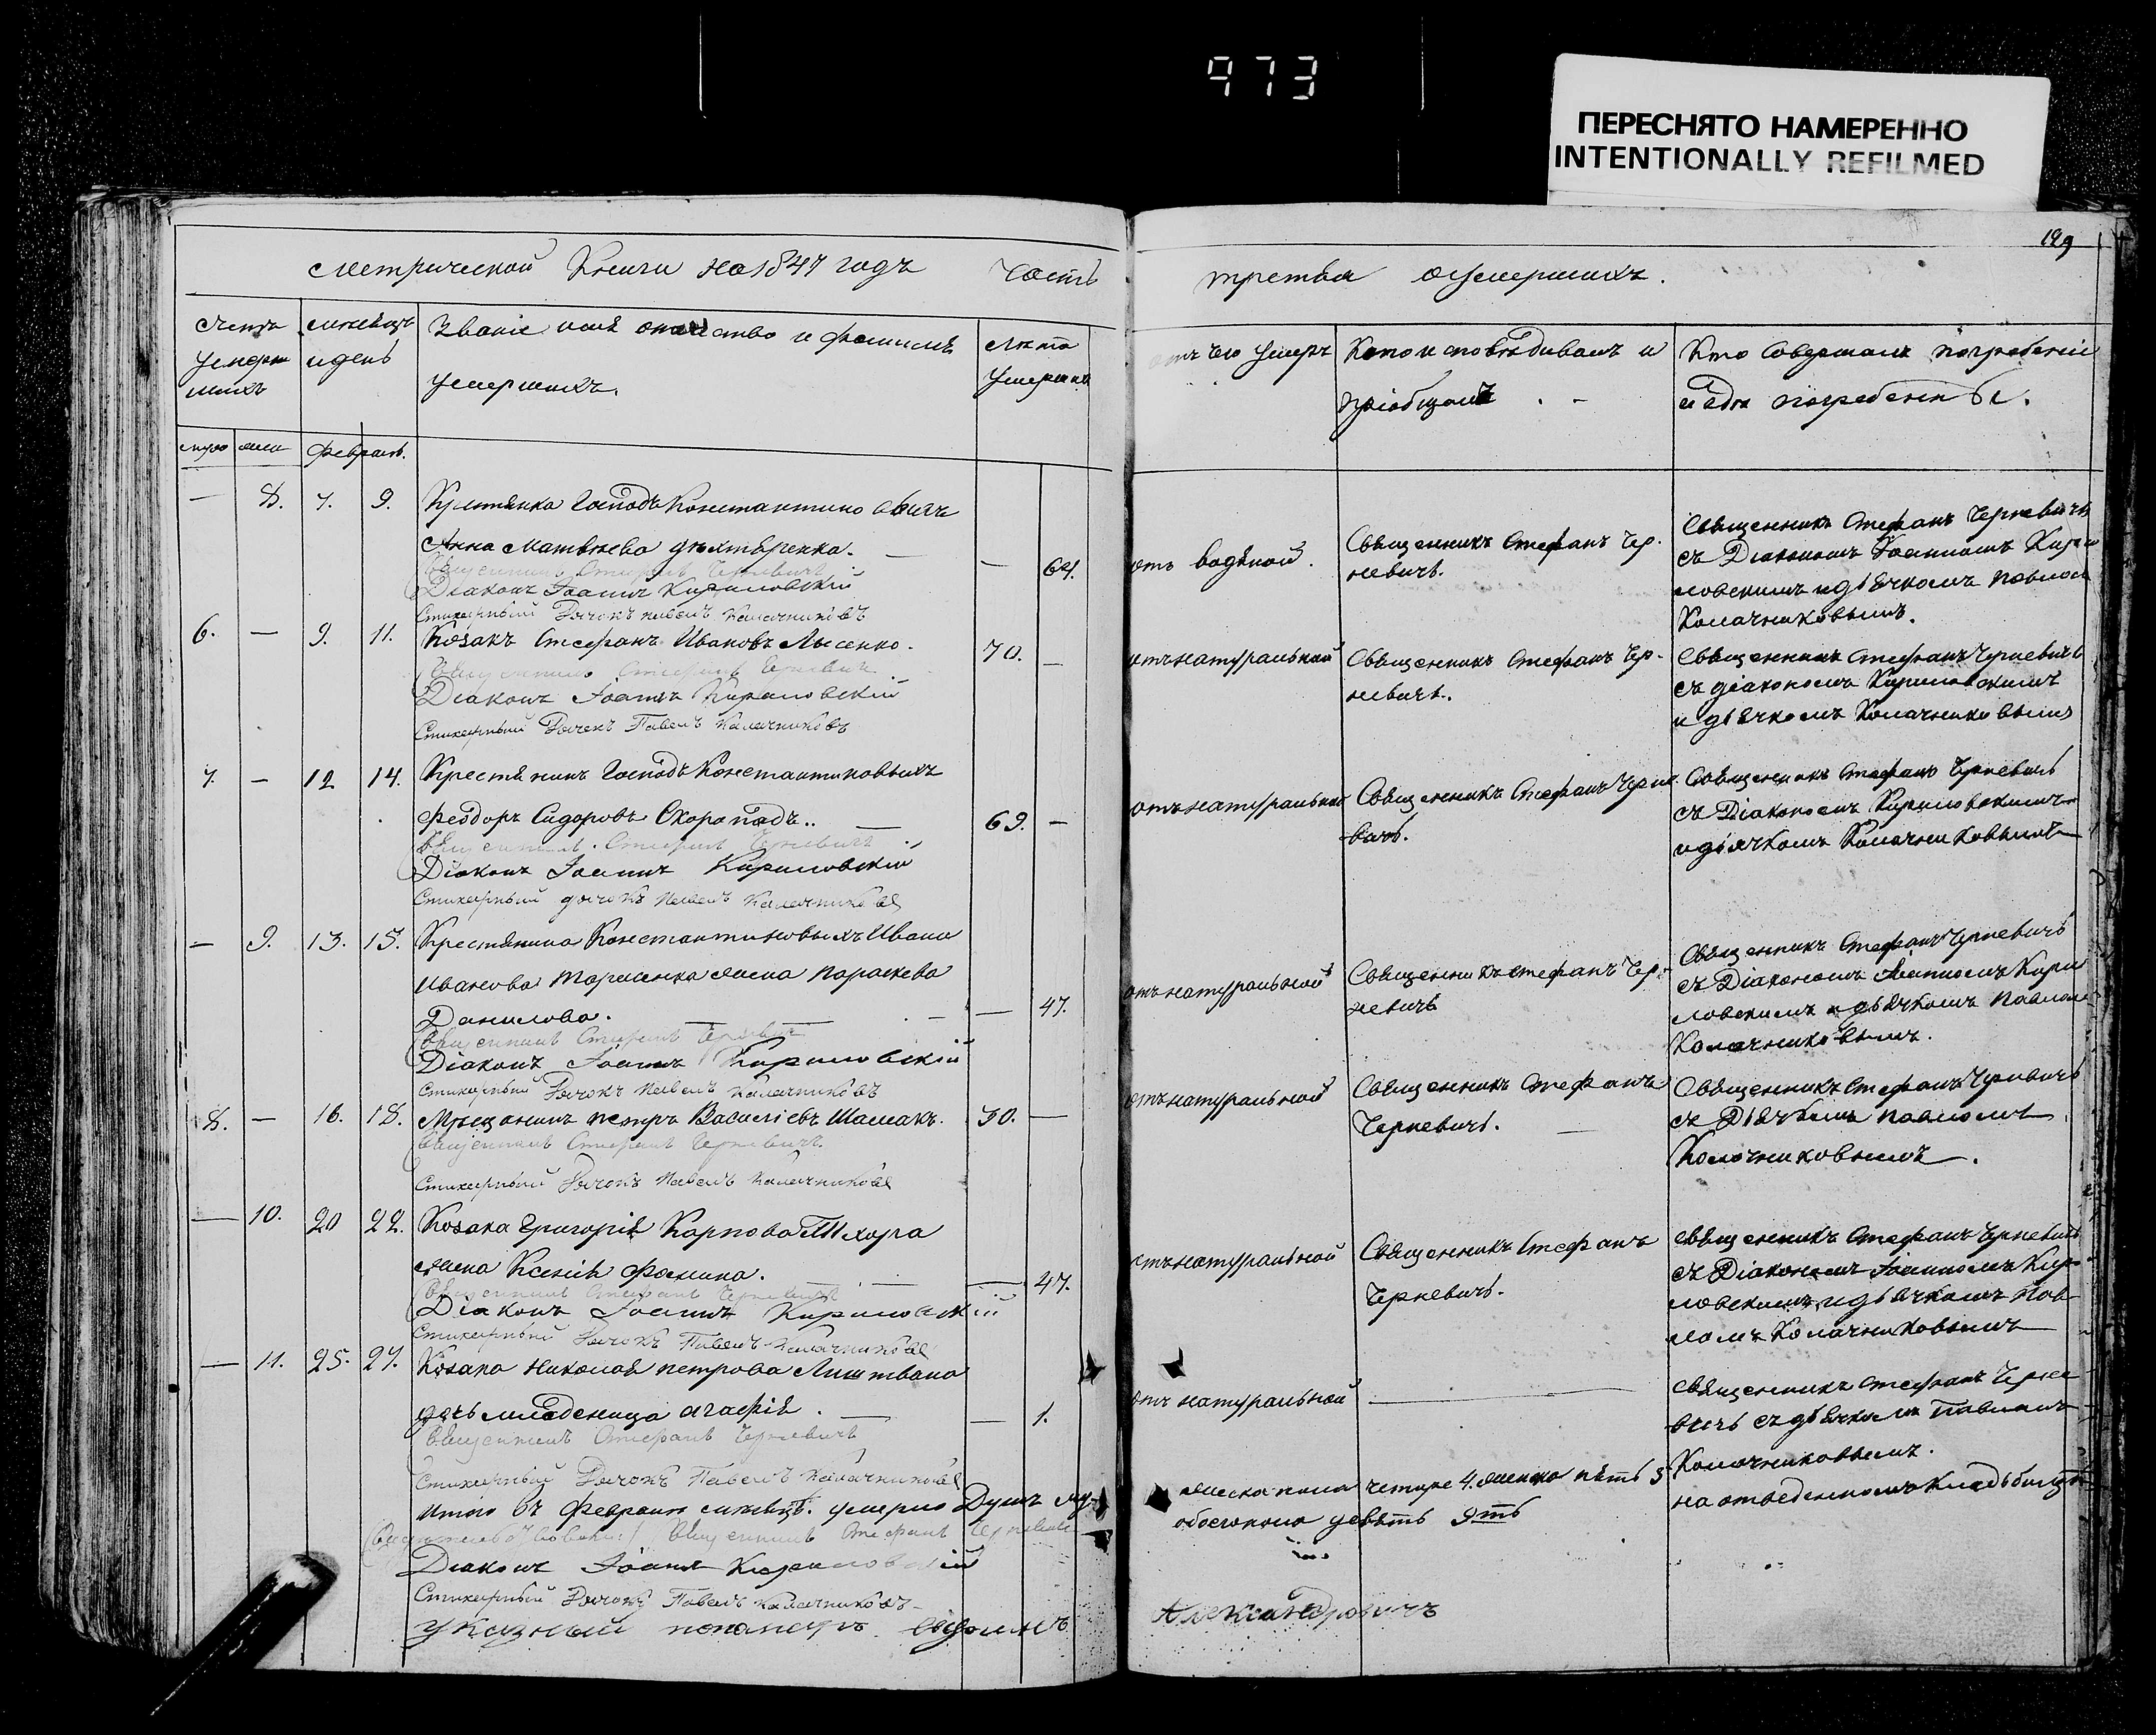 973
ПЕРЕСНЯТО НАМЕРЕННО
INTENTIONALLY REFILMED
129
Метрической Книги на 1847 годъ Часть третья о умершихъ.
Счетъ умершихъ
мѣсяцъ и день
Званіе имя отчество и фамилія умершихъ.
Лѣта умершихъ
отъ чего умеръ
Кто исповѣдивалъ и пріобщалъ
Кто Совершалъ погребеніе и гдѣ погребены.
муж жен Февраль.
— 8. 7. 9. Крестянка Господъ Константиновыхъ
Анна Матвѣева Дѣхтяренка. — — 64.
отъ водяной.
Священникъ Стефанъ Черневичъ.
Священникъ Стефанъ Черневичъ
съ Діакономъ Іоанномъ Кирил
ловскимъ и дьячкомъ Павломъ
Колачниковымъ.
Священникъ Стефанъ Черневичъ
Діаконъ Іоаннъ Кириловскій
Стихарный Дьячокъ Павелъ Калачниковъ
6. — 9. 11. Козакъ Стефанъ Ивановъ Лысенко. 70. —
отъ натуральной
Священникъ Стефанъ Чер-
невичъ.
Священникъ Стефанъ Черневичъ
съ діакономъ Кириловскимъ
и дьячкомъ Колачниковымъ
Священникъ Стефанъ Черневичъ
Діаконъ Іоаннъ Кириловскій
Стихарный Дьячокъ Павелъ Калачниковъ
7. — 12 14. Крестянинъ Господъ Константиновыхъ
Феодоръ Сидоровъ Скоропадъ.. — 69. —
отъ натуральной
Священникъ Стефанъ Черне-
вичъ.
Священникъ Стефанъ Черневичъ
съ Діакономъ Кириловскимъ
и дьячкомъ Колачниковымъ
Священникъ Стефанъ Черневичъ
Діаконъ Іоаннъ Кириловскій
Стихарный дьячокъ Павелъ Калачниковъ
— 9. 13. 15. Крестянина Константиновыхъ Ивана
Иванова жена Параскева
Данилова. — — 47.
отъ натуральной
Священникъ Стефанъ Чер-
невичъ
Священникъ Стефанъ Черневичъ
съ Діакономъ Іоанномъ Кири
ловскимъ и дьячкомъ Павломъ
Колачниковымъ.
Священникъ Стефанъ Черневичъ
Діаконъ Іоаннъ Кириловскій
Стихарный Дьячокъ Павелъ Калачниковъ
8. — 16. 18. Мѣщанинъ Петръ Василіевъ Шамакъ. 30. —
отъ натуральной
Священникъ Стефанъ
Черневичъ.
Священникъ Стефанъ Черневичъ
съ Дьячкомъ Павломъ
Колачниковымъ.
Священникъ Стефанъ Черневичъ
Стихарный Дьячокъ Павелъ Калачниковъ
— 10. 20 22. Козака Григорія Карпова
жена Ксенія Фомина. — — 47.
отъ натуральной
Священникъ Стефанъ
Черневичъ.
Священникъ Стефанъ Черневичъ
съ Діакономъ Іоанномъ Кири
ловскимъ и дьячкомъ Пав
ломъ Колачниковымъ
Священникъ Стефанъ Черневичъ
Діаконъ Іоаннъ Кириловскій
Стихарный Дьячокъ Павелъ Калачниковъ
— 11. 25. 27. Козака Николая Петрова Лиштвана
дочь младеница Агафія. — — 1.
отъ натуральной
—
Священникъ Стефанъ Черне
вичъ съ дьячкомъ Павломъ
Колачниковымъ.
на отведенномъ Кладбищѣ
Священникъ Стефанъ Черневичъ
Стихарный Дьячокъ Павелъ Калачниковъ
Итого въ Февралѣ мѣсяцѣ умерло Душъ муж-
ска пола четыре 4. женска пять 5.
обоего пола девять 9ть
Священникъ Стефанъ Черневичъ
Діаконъ Іоаннъ Кириловскій
Стихарный Дьячокъ Павелъ Калачниковъ
Указный понамарь Александровичъ